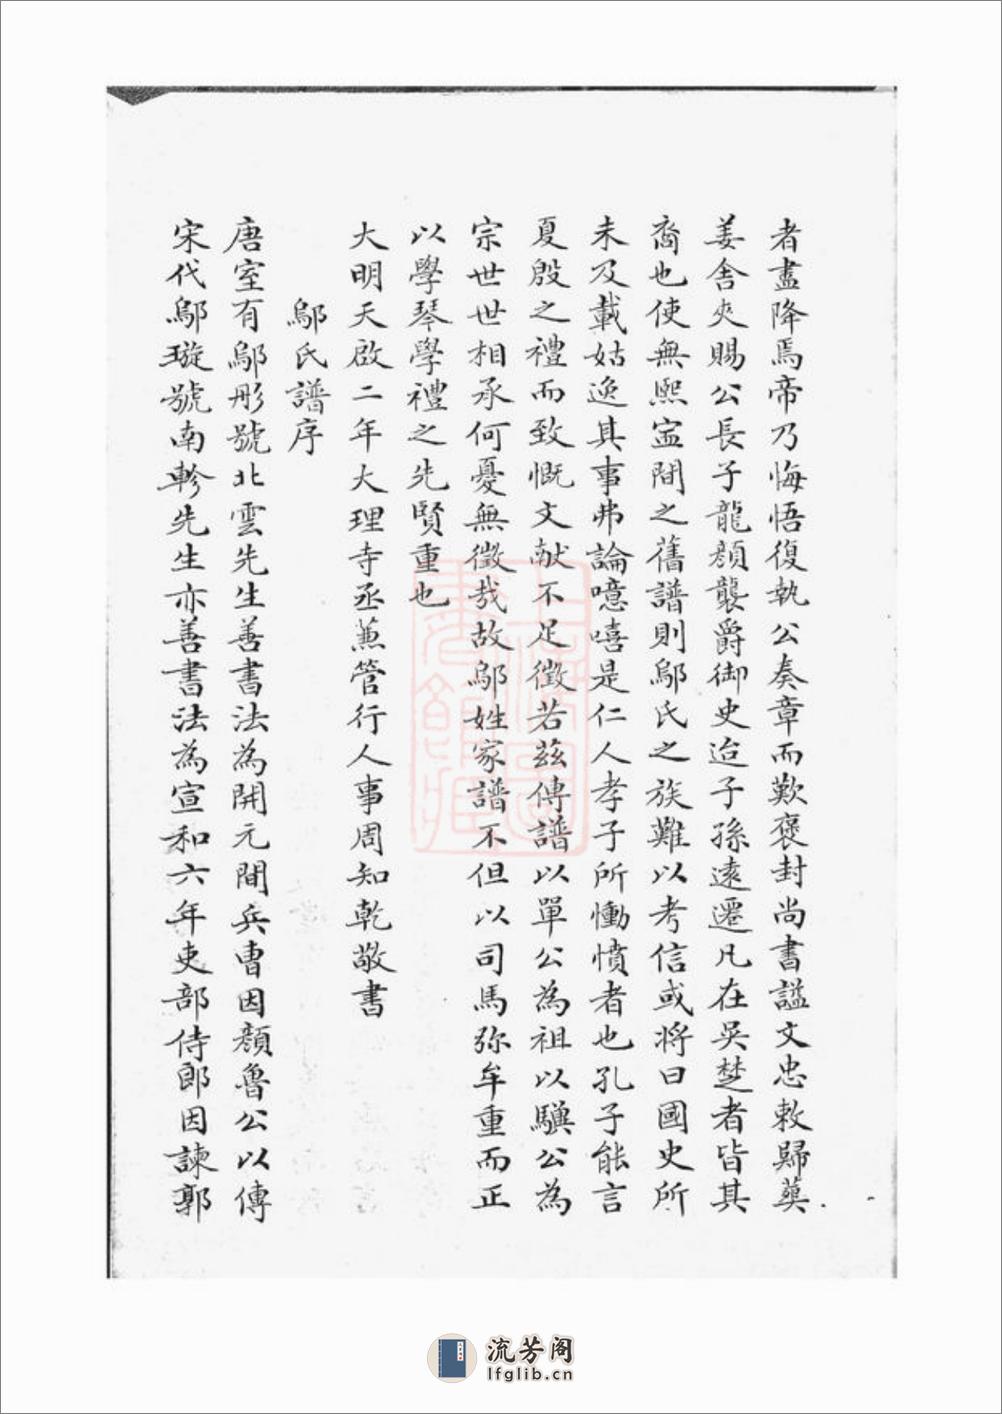 者盡降焉帝乃悔悟復執公奏章而歎褒封尚書諡文忠敕歸葬
姜舍夾賜公長子龍顏襲爵御史迨子孫遠遷凡在吳楚者皆其
裔也使無熙寍間之舊譜則鄔氏之族難以考信或將曰國史所
未及載姑逸其事弗論噫嘻是仁人孝子所慟憤者也孔子能言
夏殷之禮而致慨文献不足徵若茲傳譜以單公為祖以驥公為
宗世世相承何憂無徵哉故鄔姓家譜不但以司馬弥牟重而正
以學琴學禮之先賢重也
大明天啟二年大理寺丞蒹管行人事周知乾敬書
鄔氏譜序
唐室有鄔彤號北雲先生善書法為開元間兵曹因顏魯公以傳
宋代鄔璇號南軫先生亦善書法為宣和六年吏部侍郎因諫郭
上海圖書館藏
流芳阁
lfglib.cn